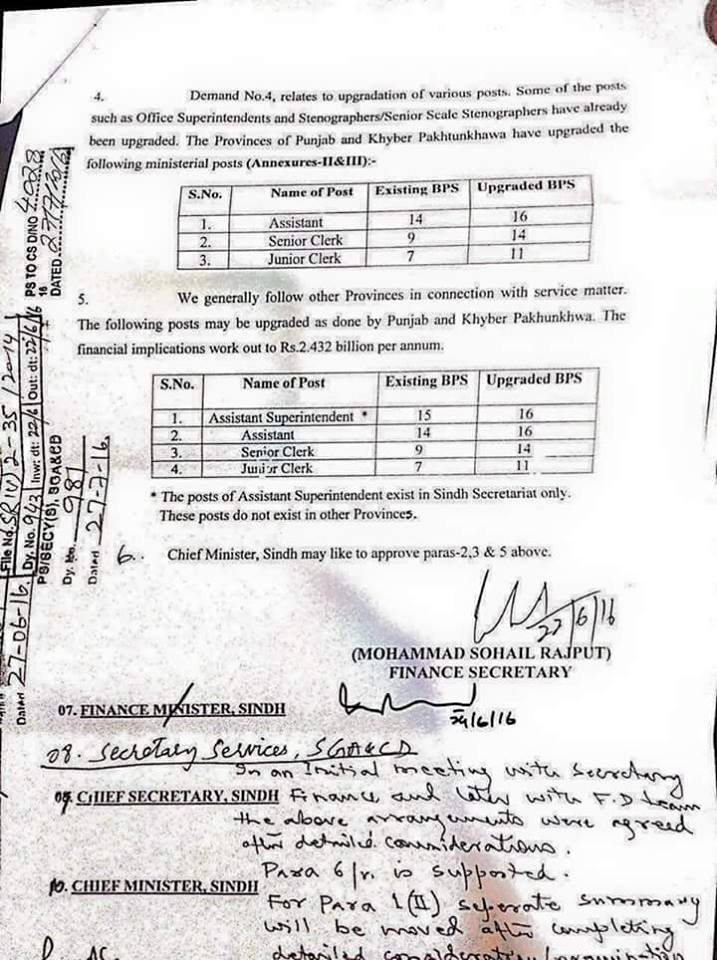 4. Demand No.4, relates to upgradation of various posts. Some of the posts
such as Office Superintendents and Stenographers/Senior Scale Stenographers have already
been upgraded. The Provinces of Punjab and Khyber Pakhtunkhawa have upgraded the
following ministerial posts (Annexures-II&III):-
S.No. Name of Post Existing BPS Upgraded BPS
1. Assistant 14 16
2. Senior Clerk 9 14
3. Junior Clerk 7 11
5. We generally follow other Provinces in connection with service matter.
The following posts may be upgraded as done by Punjab and Khyber Pakhunkhwa. The
financial implications work out to Rs.2.432 billion per annum.
S.No. Name of Post Existing BPS Upgraded BPS
1. Assistant Superintendent * 15 16
2. Assistant 14 16
3. Senior Clerk 9 14
4. Junior Clerk 7 11
* The posts of Assistant Superintendent exist in Sindh Secretariat only.
These posts do not exist in other Provinces.
6. Chief Minister, Sindh may like to approve paras-2,3 & 5 above.
22/6/16
(MOHAMMAD SOHAIL RAJPUT)
FINANCE SECRETARY
07. FINANCE MINISTER, SINDH
24/6/16
08. Secretary Services, SGA&CD
In an Initial meeting with Secretary
09. CHIEF SECRETARY, SINDH Finance and later with F.D team
the above arrangements were agreed
after detailed considerations.
Para 6/n. is supported.
10. CHIEF MINISTER, SINDH
For Para 1(II) seperate summary
will be moved after completing
detailed consideration/
PS TO CS D/NO 4028
16
DATED 27/7/2016
File No. SR(IV) 2-35/2014
Dy. No. 943 Inw: dt: 22/6 Out: dt: 22/6/16
PS/SECY(S), SGA&CD
Dy. No. 981
Dated 27-7-16
Dated 27-06-16